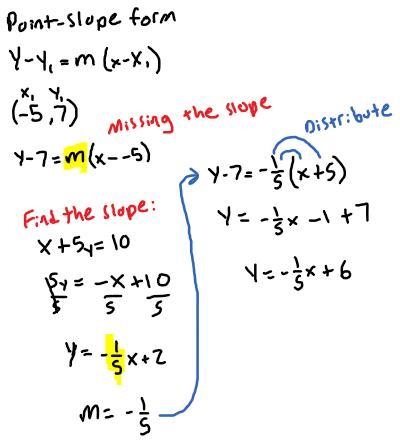 Point-slope form
Y-Y₁ = m (x-X₁)
X₁ Y₁
(-5, 7)
Missing the slope
Y-7 = m(x--5)
Find the slope:
x + 5y = 10
5y/5 = -x/5 + 10/5
y = -1/5 x + 2
m = -1/5
Distribute
Y-7 = -1/5 (x+5)
Y = -1/5 x - 1 + 7
Y = -1/5 x + 6